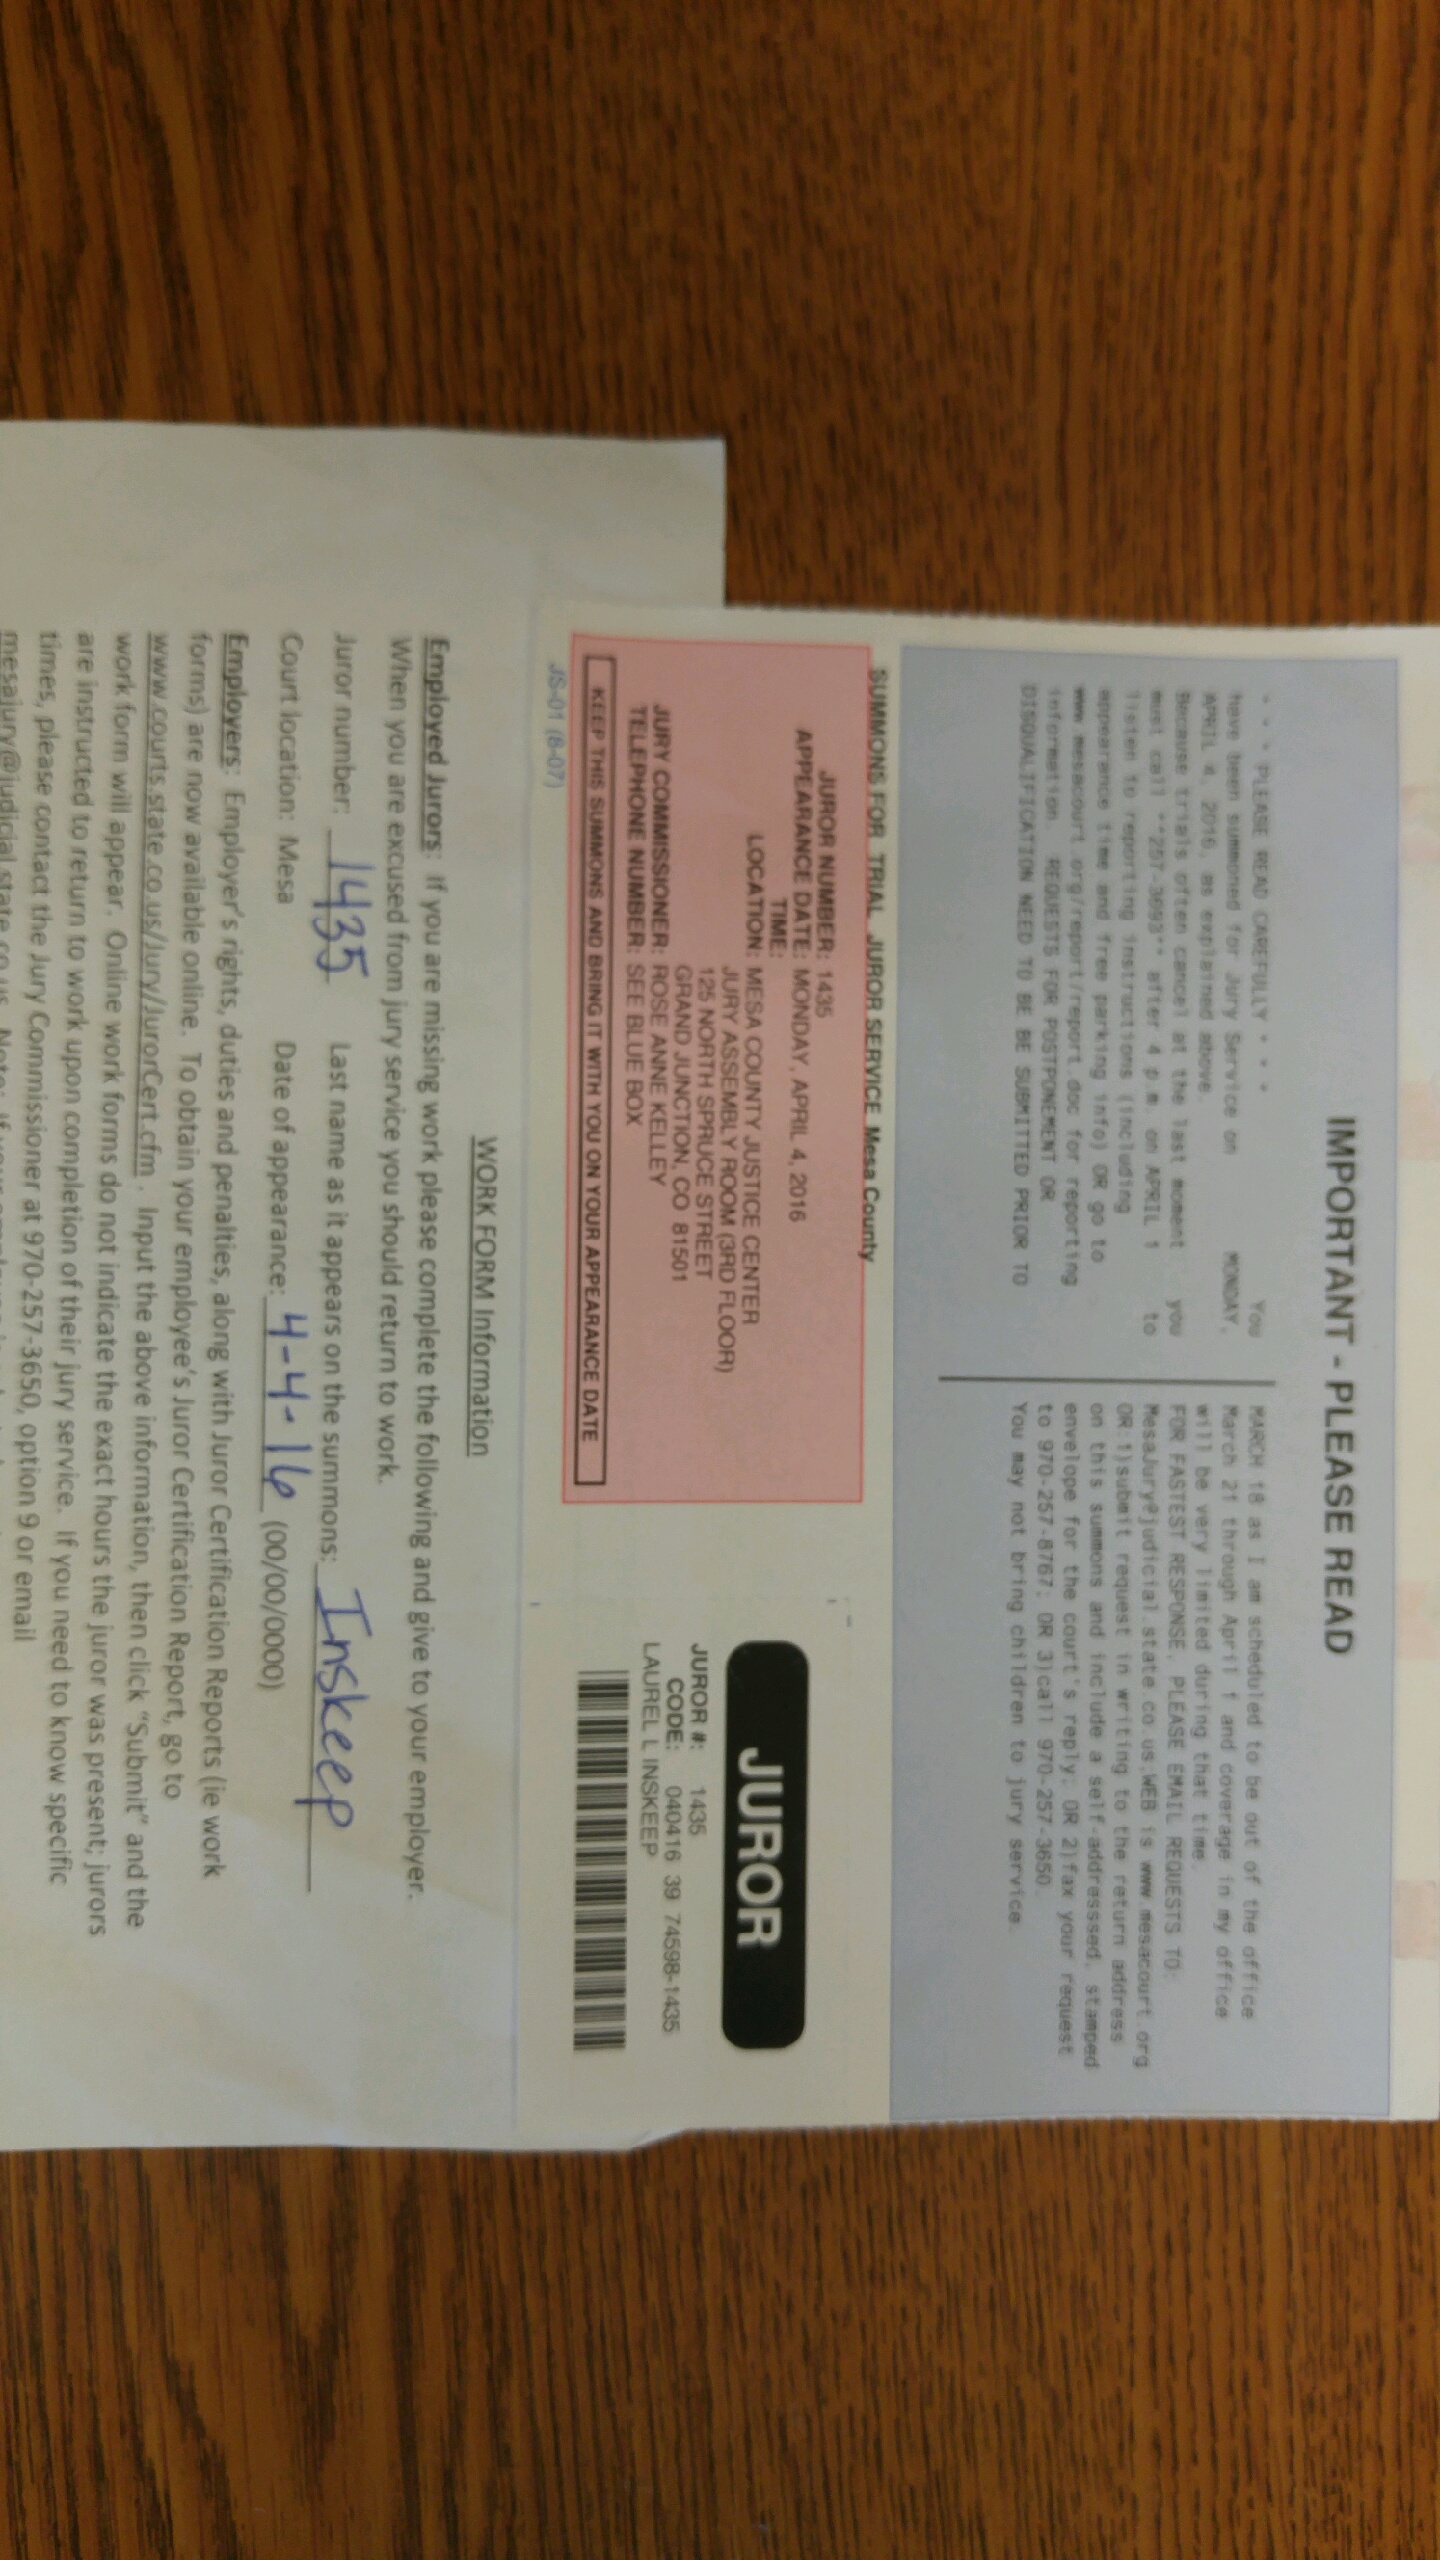 IMPORTANT - PLEASE READ
* * * PLEASE READ CAREFULLY * * * You
have been summoned for Jury Service on MONDAY,
APRIL 4, 2016, as explained above.
Because trials often cancel at the last moment you
must call **257-3693** after 4 p.m. on APRIL 1 to
listen to reporting instructions (including
appearance time and free parking info) OR go to
www.mesacourt.org/report/report.doc for reporting
information. REQUESTS FOR POSTPONEMENT OR
DISQUALIFICATION NEED TO BE BE SUBMITTED PRIOR TO
MARCH 18 as I am scheduled to be out of the office
March 21 through April 1 and coverage in my office
will be very limited during that time.
FOR FASTEST RESPONSE, PLEASE EMAIL REQUESTS TO:
MesaJury@judicial.state.co.us;WEB is www.mesacourt.org
OR:1)submit request in writing to the return address
on this summons and include a self-addressed, stamped
envelope for the court's reply; OR 2)fax your request
to 970-257-8767; OR 3)call 970-257-3650.
You may not bring children to jury service.
SUMMONS FOR TRIAL JUROR SERVICE Mesa County
JUROR NUMBER: 1435
APPEARANCE DATE: MONDAY, APRIL 4, 2016
TIME:
LOCATION: MESA COUNTY JUSTICE CENTER
JURY ASSEMBLY ROOM (3RD FLOOR)
125 NORTH SPRUCE STREET
GRAND JUNCTION, CO 81501
JURY COMMISSIONER: ROSE ANNE KELLEY
TELEPHONE NUMBER: SEE BLUE BOX
KEEP THIS SUMMONS AND BRING IT WITH YOU ON YOUR APPEARANCE DATE
JS-01 (8-07)
JUROR
JUROR #: 1435
CODE: 040416 39 74598-1435
LAUREL L INSKEEP
WORK FORM Information
Employed Jurors: If you are missing work please complete the following and give to your employer.
When you are excused from jury service you should return to work.
Juror number: 1435 Last name as it appears on the summons: Inskeep
Court location: Mesa Date of appearance: 4-4-16 (00/00/0000)
Employers: Employer's rights, duties and penalties, along with Juror Certification Reports (ie work
forms) are now available online. To obtain your employee's Juror Certification Report, go to
www.courts.state.co.us/Jury/JurorCert.cfm . Input the above information, then click "Submit" and the
work form will appear. Online work forms do not indicate the exact hours the juror was present; jurors
are instructed to return to work upon completion of their jury service. If you need to know specific
times, please contact the Jury Commissioner at 970-257-3650, option 9 or email
mesajury@judicial.state.co.us. Note: If your